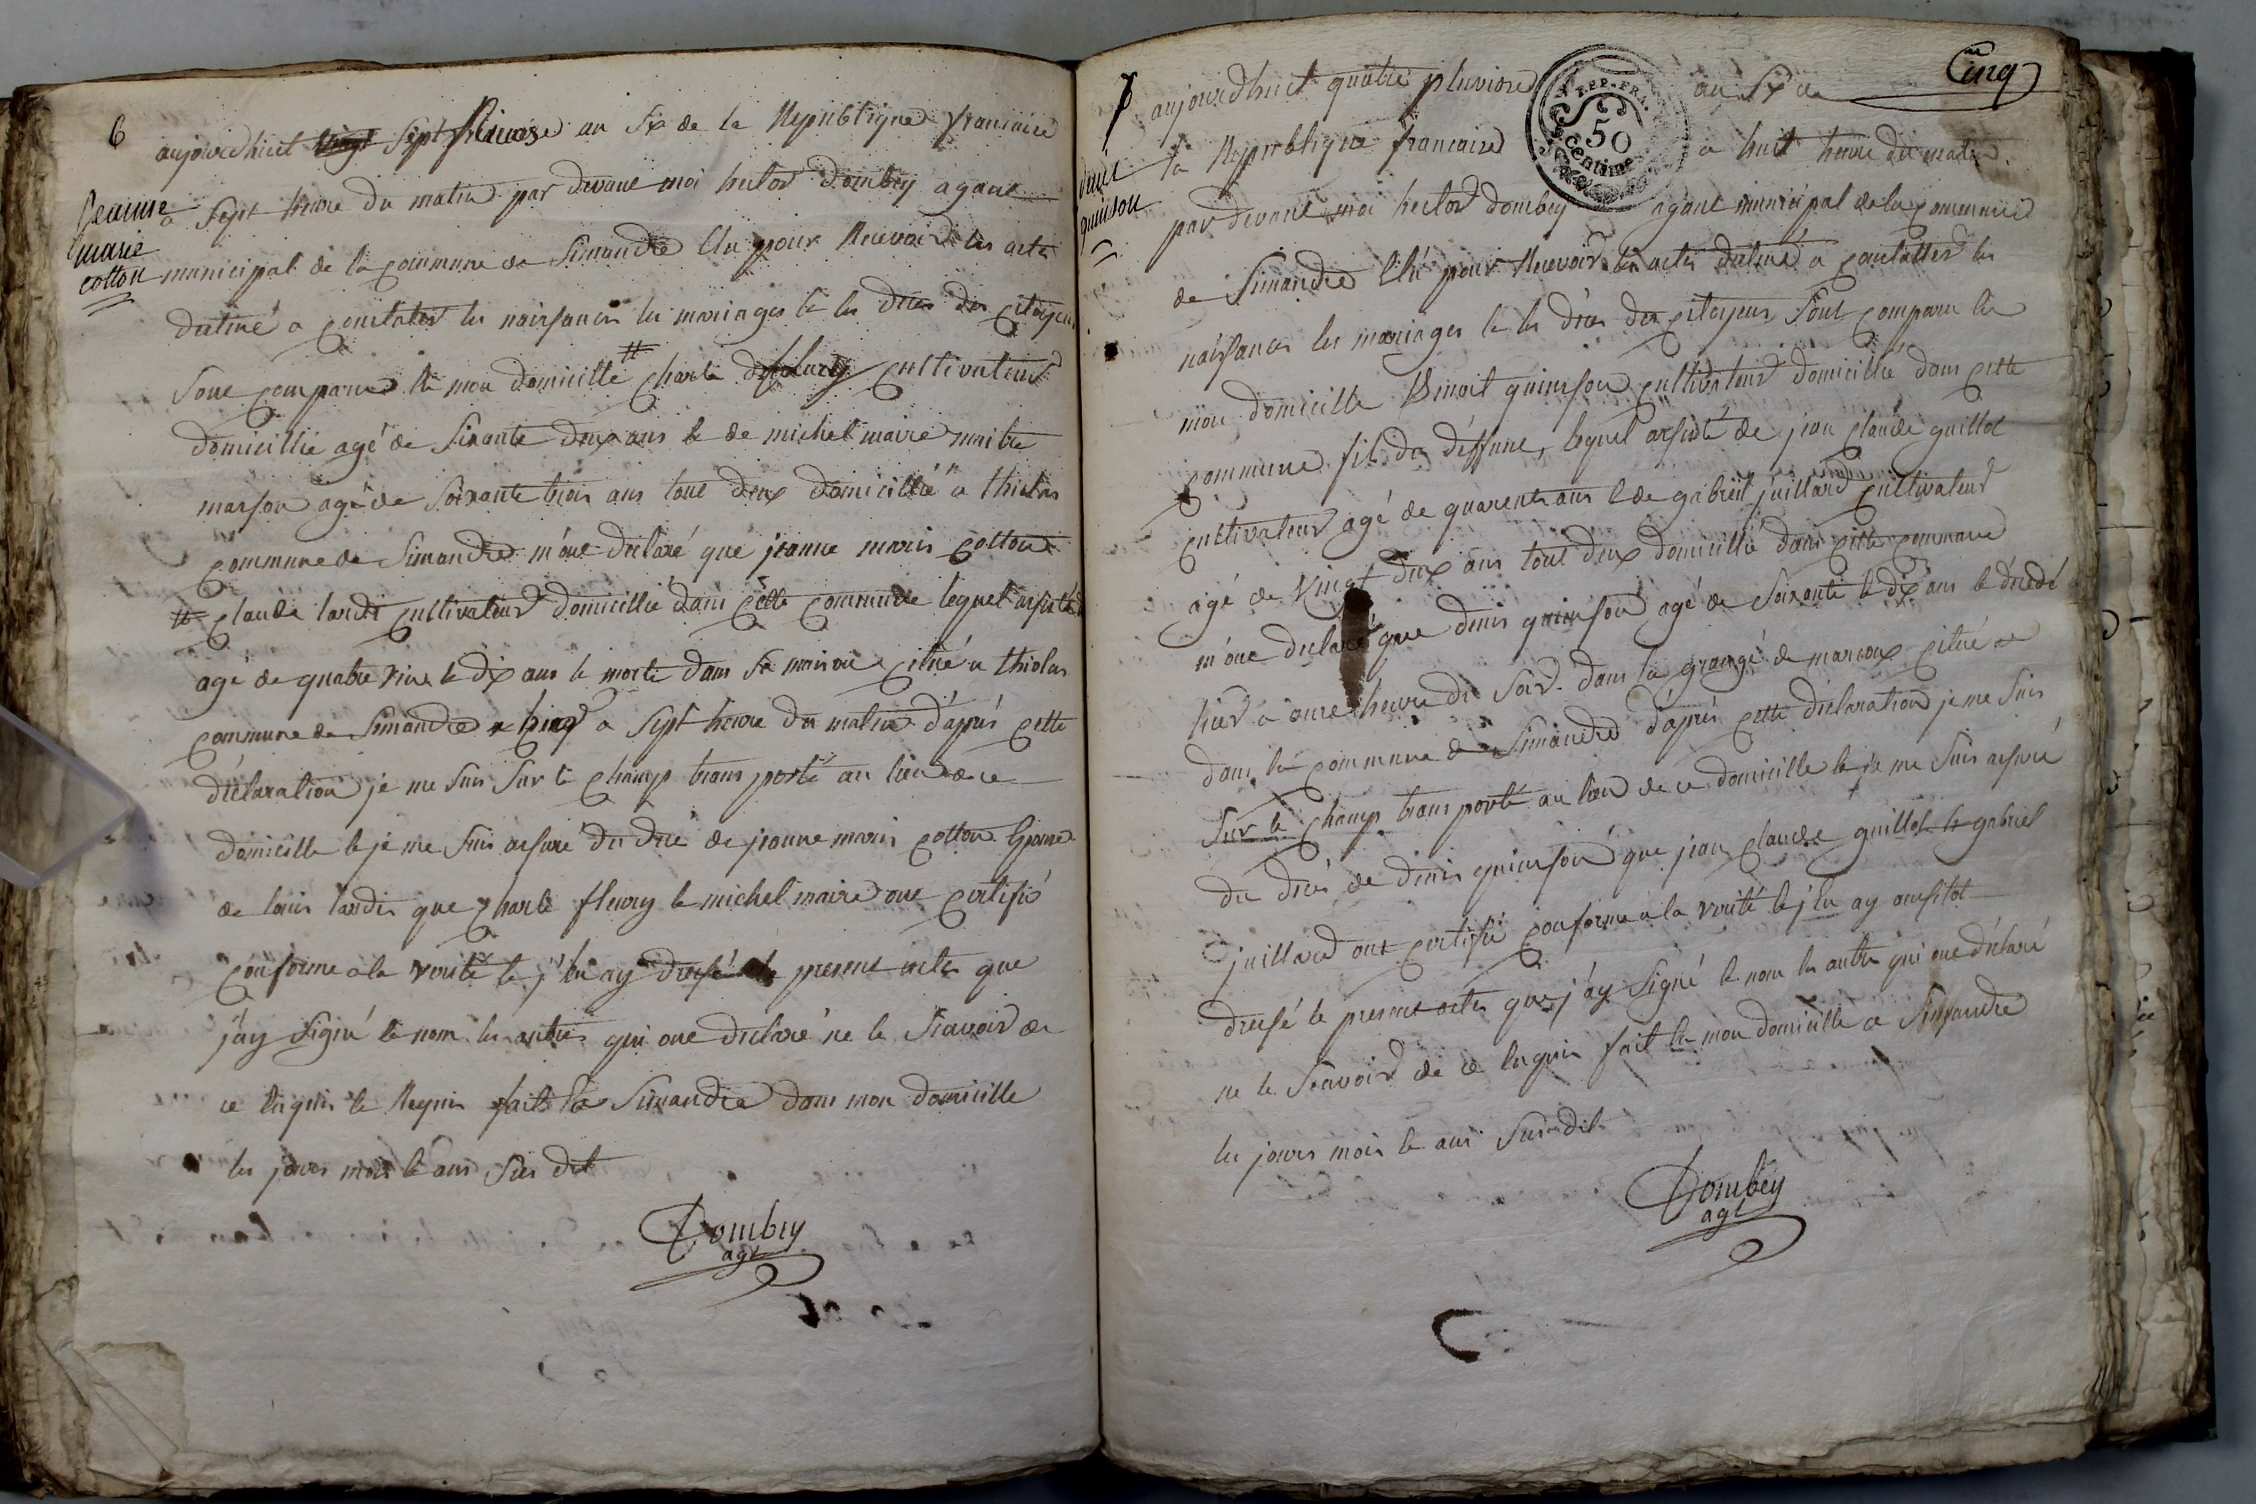 6
aujourdhuit sept an six de la Republique francaise
Jeanne
marie
cotton
a sept heure du matin par devant moi hector dombey agant
municipal de la commune de Simandre Elu pour Recevoir les acte
destiné a constater les naissances les mariages et les dees des citoyens
sont comparu en mon domicille # charle cultivateur
domicillie agé de soixante deux ans et de michel maire maitre
masson agé de soixante trois ans tout deux domicillié a thiolas
commune de Simandre m'ont declaré que jeanne marie cotton
# claude landis cultivateur domicillie dans cette commune lequel assisté
agé de quatre vint et dix ans et morte dans sa maison citué a thiolas
commune de Simandre hier a sept heure du matin d'aprés cette
déclaration je me suis sur le champ trans porté au lieu de ce
domicille et je me suis assuré du dée de jeanne marie cotton Epouse
de louis landis que charle fleury et michel maire ont certifié
conforme a la verité et j'en ay dressé le present acte que
j'ay signé et nom les autres qui ont declaré ne le scavoir de
ce enquis et Requis fait a Simandre dans mon domicille
les jours mois et ans sus dit
Dombey
agt
Cinq
7
aujourdhuit quatre pluviose an six de
REP. FRA.
50
centimes
denis
quinson
la Republique francaise a huit heure du matin
par devant moi hector dombey agant municipal de la commune
de Simandre Elu pour Recevoir les actes destiné a constatter les
naissances les mariages et les dées des citoyens sont comparu en
mon domicille Benoit quinson cultivateur domicillie dans cette
commune fils du deffunt, lequel assisté de jean claude guillot
cultivateur agé de quarente ans et de gabriel juillard cultivateur
agé de vingt deux ans tout deux domicillié dans cette commune
m'ont declaré que denis quinson agé de soixante et dix ans et décédé
hier a onze heure du soir dans la grange de marcoux citué
dans la commune de Simandre d'aprés cette déclaration je me suis
sur le champ trans porté au lieu de ce domicille et je me suis assuré
du dées de denis quinson que jean claude guillot et gabriel
juillard ont certifié conforme a la verité et j'en ay aussitot
dressé le present acte que j'ay signé et nom les autre qui ont déclaré
ne le scavoir de ce enquis fait en mon domicille a Simandre
les jours mois et ans sus dit
Dombey
agt